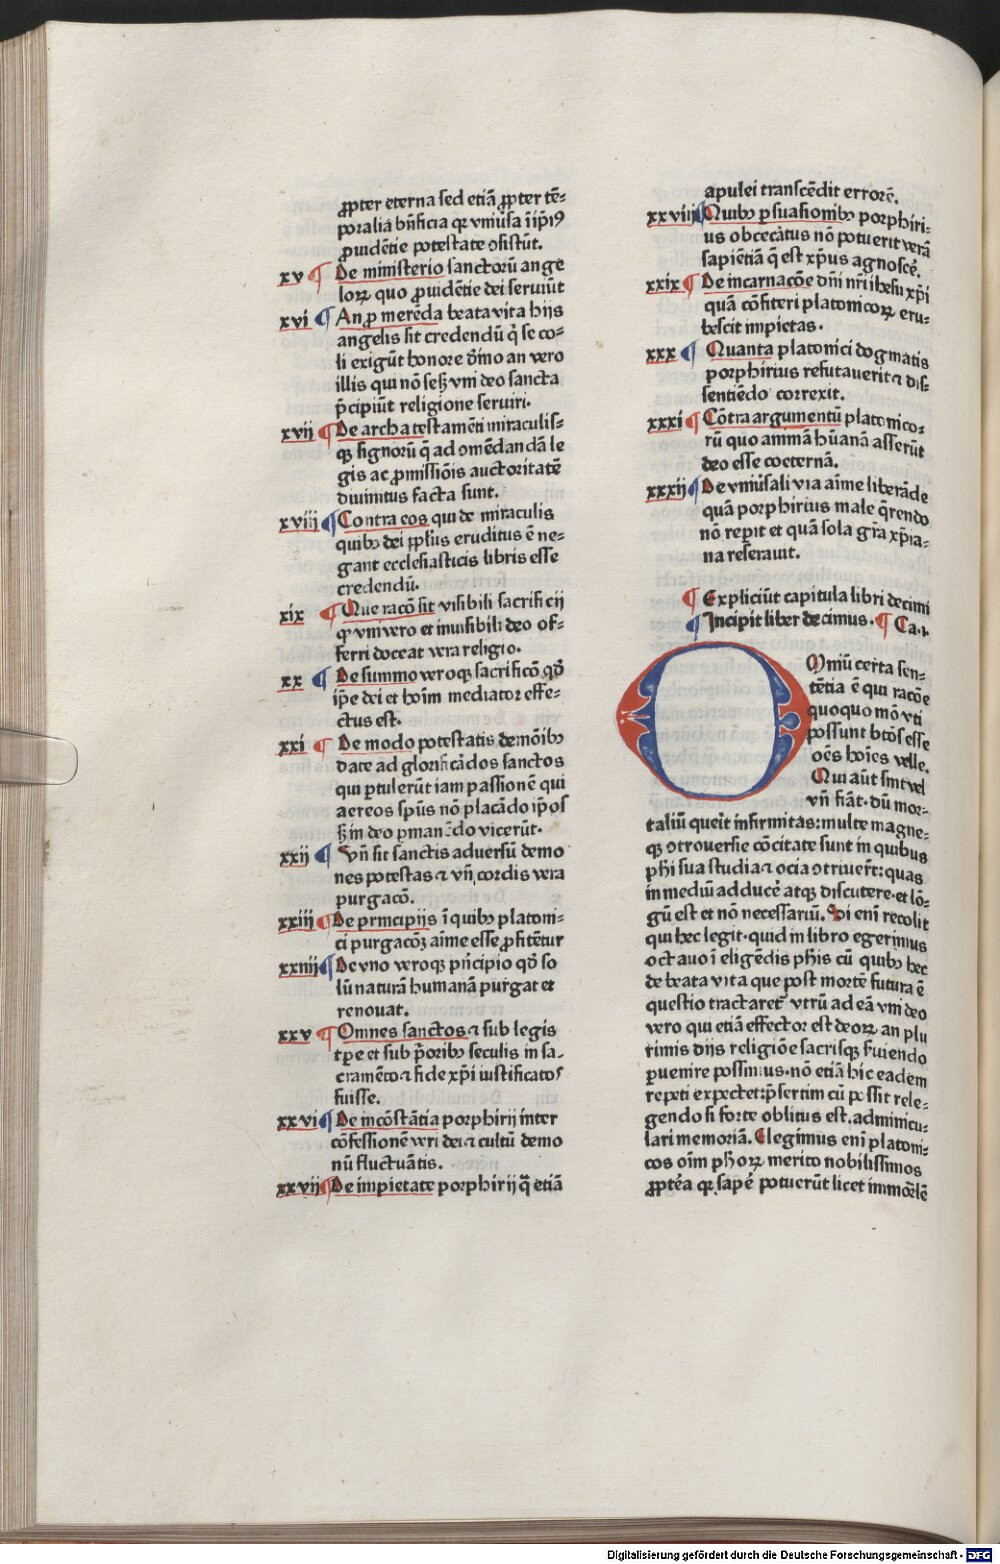 ꝓpter eterna sed etiā ꝓpter tē⸗
poralia bn̄ficia qꝛ vniũsa ī ip̄i⁹
ꝓuidētie potestate ↄsistūt.
xv ¶ De ministerio sanctoꝛū ange
loꝝ quo ꝓuidētie dei seruiūt
xvi ¶ An ꝓ merēda beata vita hijs
angelis sit credendū q̇ se co⸗
li exigūt honore diuīo an vero
illis qui nō seƷ vni deo sancta
p̄cipiūt religione seruiri.
xvii ¶ De archa testamēti miraculis⸗
qꝫ signoꝛū q̄ ad ↄmēdandā le
gis ac ꝓmissiōis auctoritatē
diuinitus facta sunt.
xviii ¶ Contra eos qui de miraculis
quibꝫ dei ppl̄us eruditus ē ne⸗
gant ecclesiasticis libris esse
credendū.
xix ¶ Que racō sit visibili sacrificij
qꝫ vni vero et inuisibili deo of⸗
ferri doceat vera religio.
xx ¶ De summo veroqꝫ sacrificō qd̄
ip̄e dei et hoīm mediator effe⸗
ctus est.
xxi ¶ De modo potestatis demōibꝫ
date ad glorificādos sanctos
qui ꝑtulerūt iam passionē qui
aereos spūs nō placādo ip̄os
sꝫ in deo ꝑmanēdo vicerūt.
xxij ¶ Vn̄ sit sanctis adversū demo
nes potestas ⁊ vn̄ cordis vera
purgacō.
xxiii ¶ De principijs ī quibꝫ platoni⸗
ci purgacōꝫ aīme esse ꝓfitētur
xxiiij ¶ De vno veroqꝫ pn̄cipio qd̄ so
lū naturā humanā purgat et
renouat.
xxv ¶ Omnes sanctos ⁊ sub legis
tꝑe et sub p̄oribꝫ seculis in sa⸗
cramēto ⁊ fide xp̄i iustificatos
fuisse.
xxvi ¶ De incōstātia porphirij inter
cōfessionē veri dei ⁊ cultū demo
nū fluctuātis.
xxvij ¶ De impietate porphirij q̄ etiā
apulei transcēdit errorē.
xxviij ¶ Quibꝫ ꝑsuasionibꝫ porphiri⸗
us obcecatus nō potuerit verā
sapiētiā q̄ est xp̄us agnoscē.
xxix ¶ De incarnacōe dn̄i nr̄i ihesu xp̄i
quā cōfiteri platonicoꝝ eru⸗
bescit impietas.
xxx ¶ Quanta platonici dogmatis
porphirius refutauerit ⁊ dis⸗
sentiēdo correxit.
xxxi ¶ Cōtra argumentū platonico⸗
rū quo animā hūanā asserūt
deo esse coeternā.
xxxij ¶ De vniũsali via aīme liberāde
quā porphirius male q̄rendo
nō rep̄it et quā sola gr̄a xp̄ia⸗
na reserauit.
¶ Expliciūt capitula libri decimi
¶ Incipit liber decimus. ¶ Ca.i.
Omniū certa sen⸗
tētia ē qui racōe
quoquo mō vti
possunt btōs esse
oēs hoīes velle.
Qui aūt sint vel
vn̄ fiāt. dū mor⸗
taliū querit infirmitas: multe magne⸗
qꝫ ↄtrouersie cōcitate sunt in quibus
ph̄i sua studia ⁊ ocia ↄtriuer̄t: quas
in mediū adducē atqꝫ discutere. et lō⸗
gū est et nō necessariū. Si enī recolit
qui hec legit. quid in libro egerimus
octauo ī eligēdis ph̄is cū quibꝫ hec
de beata vita que post mortē futura ē
questio tractaret᷑ vtrū ad eā vni deo
vero qui etiā effector est deoꝝ an plu
rimis dijs religiōe sacrisqꝫ ẜuiendo
ꝑuenire possimus. nō etiā hic eadem
repeti expectet: p̄sertim cū possit rele⸗
gendo si forte oblitus est. adminicu⸗
lari memoriā. Elegimus enī platoni⸗
cos oīm ph̄oꝝ merito nobilissimos
ꝓpt̓ea qꝛ sapē potuerūt licet immōꝛ̄lē